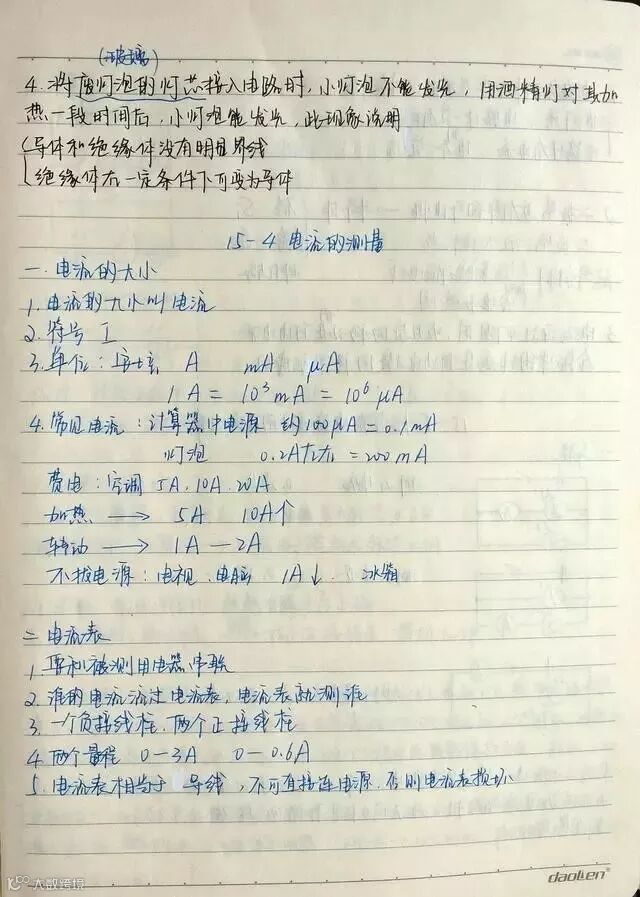 (玻璃)
4. 将废灯泡的灯芯接入电路时，小灯泡不能发光，用酒精灯对其加
热一段时间后，小灯泡能发光，此现象说明
导体和绝缘体没有明显界线
绝缘体在一定条件下可变为导体
15-4 电流的测量
一. 电流的大小
1. 电流的大小叫电流
2. 符号 I
3. 单位：安培 A mA μA
1 A = 10³ mA = 10⁶ μA
4. 常见电流：计算器中电源 约100μA = 0.1mA
灯泡 0.2A左右 = 200mA
费电：空调 5A. 10A. 20A
加热 → 5A 10A↑
转动 → 1A — 2A
不拔电源：电视. 电脑 1A↓. 冰箱
二 电流表
1. 要和被测用电器串联
2. 谁的电流流过电流表，电流表就测谁
3. 一个负接线柱. 两个正接线柱
4. 两个量程 0-3A 0-0.6A
5. 电流表相当于 导线，不可直接连电源. 否则电流表损坏
大数跨境
daolien